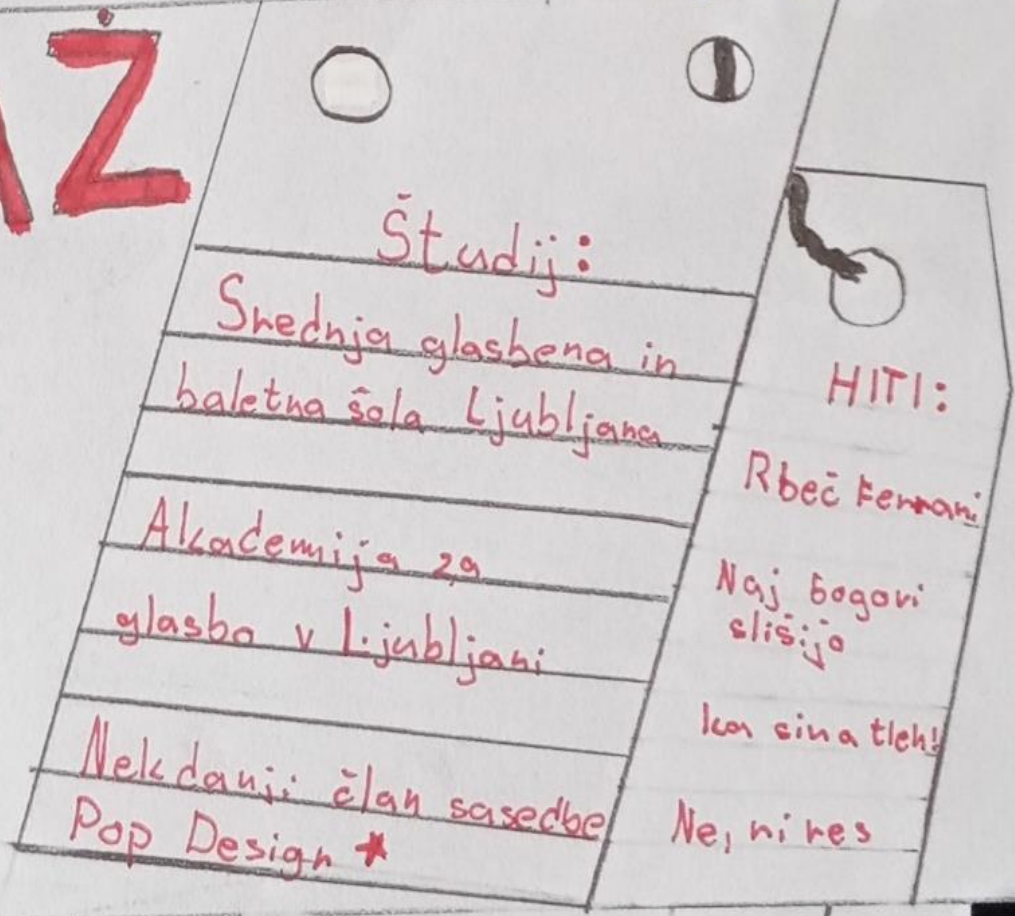 Ž
Študij:
Srednja glasbena in
baletna šola Ljubljana
Akademija za
glasbo v Ljubljani
Nekdanji član sasedbe
Pop Design
HITI:
Rbeč Ferrari
Naj bogovi
slišijo
ko si na tleh!
Ne, ni res